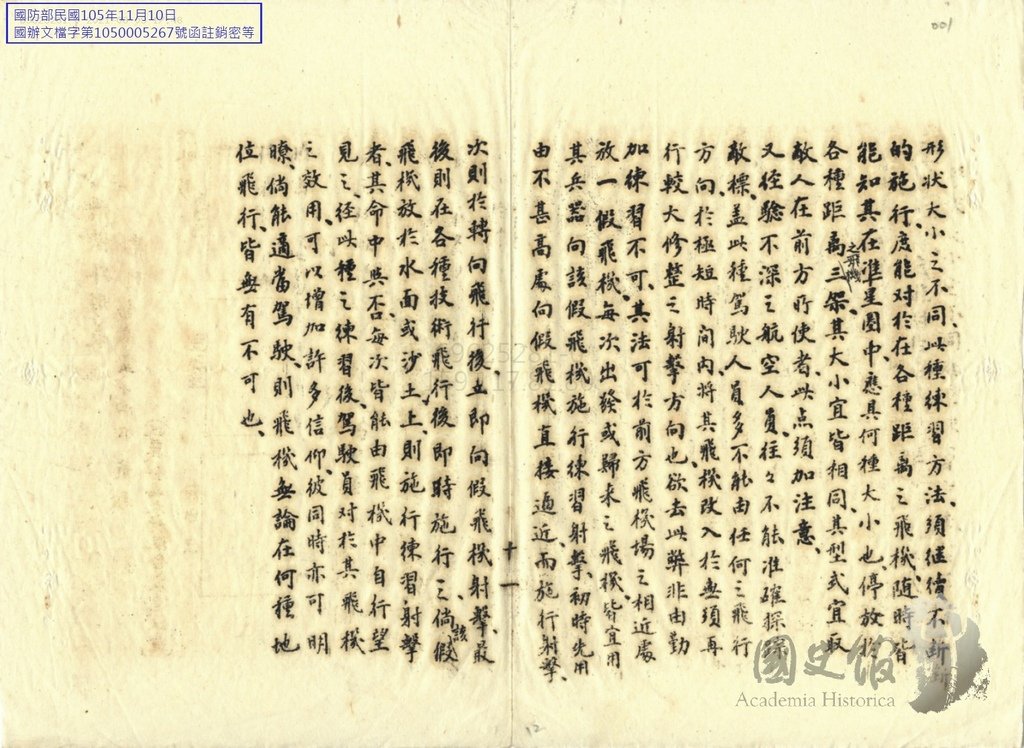 國防部民國105年11月10日
國辦文檔字第1050005267號函註銷密等
001
形狀大小之不同、此種練習方法、須繼續不斷
的施行、庶能对於在各種距离之飛機、隨時皆
能知其在準星圈中、應具何種大小也、停放於
各種距离之飛機三架、其大小宜皆相同、其型式宜取
敵人在前方所使者、此点須加注意、
又徑驗不深之航空人員、往々不能准確探
敵標、蓋此種駕駛人員多不能由任何之飛行
方向、於極短時间内、將其飛機改入於無須再
行較大修整之射擊方向也、欲去此弊非由勤
加練習不可、其法可於前方飛機場之相近處
放一假飛機、每次出發或歸來之飛機、皆宜用
其兵器向該假飛機施行練習射擊、初時先用
由不甚高處向假飛機直接迫近而施行射擊、
十一
次則於轉向飛行後、立即向假飛機射擊、最
後則在各種技術飛行後即時施行之、倘該假
飛機放於水面或沙土上、則施行練習射擊
者、其命中與否、每次皆能由飛機中自行望
見之、徑此種之練習後、駕駛員对於其飛機
之效用、可以增加許多信仰、彼同時亦可明
瞭、倘能適當駕駛、則飛機無論在何種地
位飛行、皆無有不可也、
12
國史館
Academia Historica